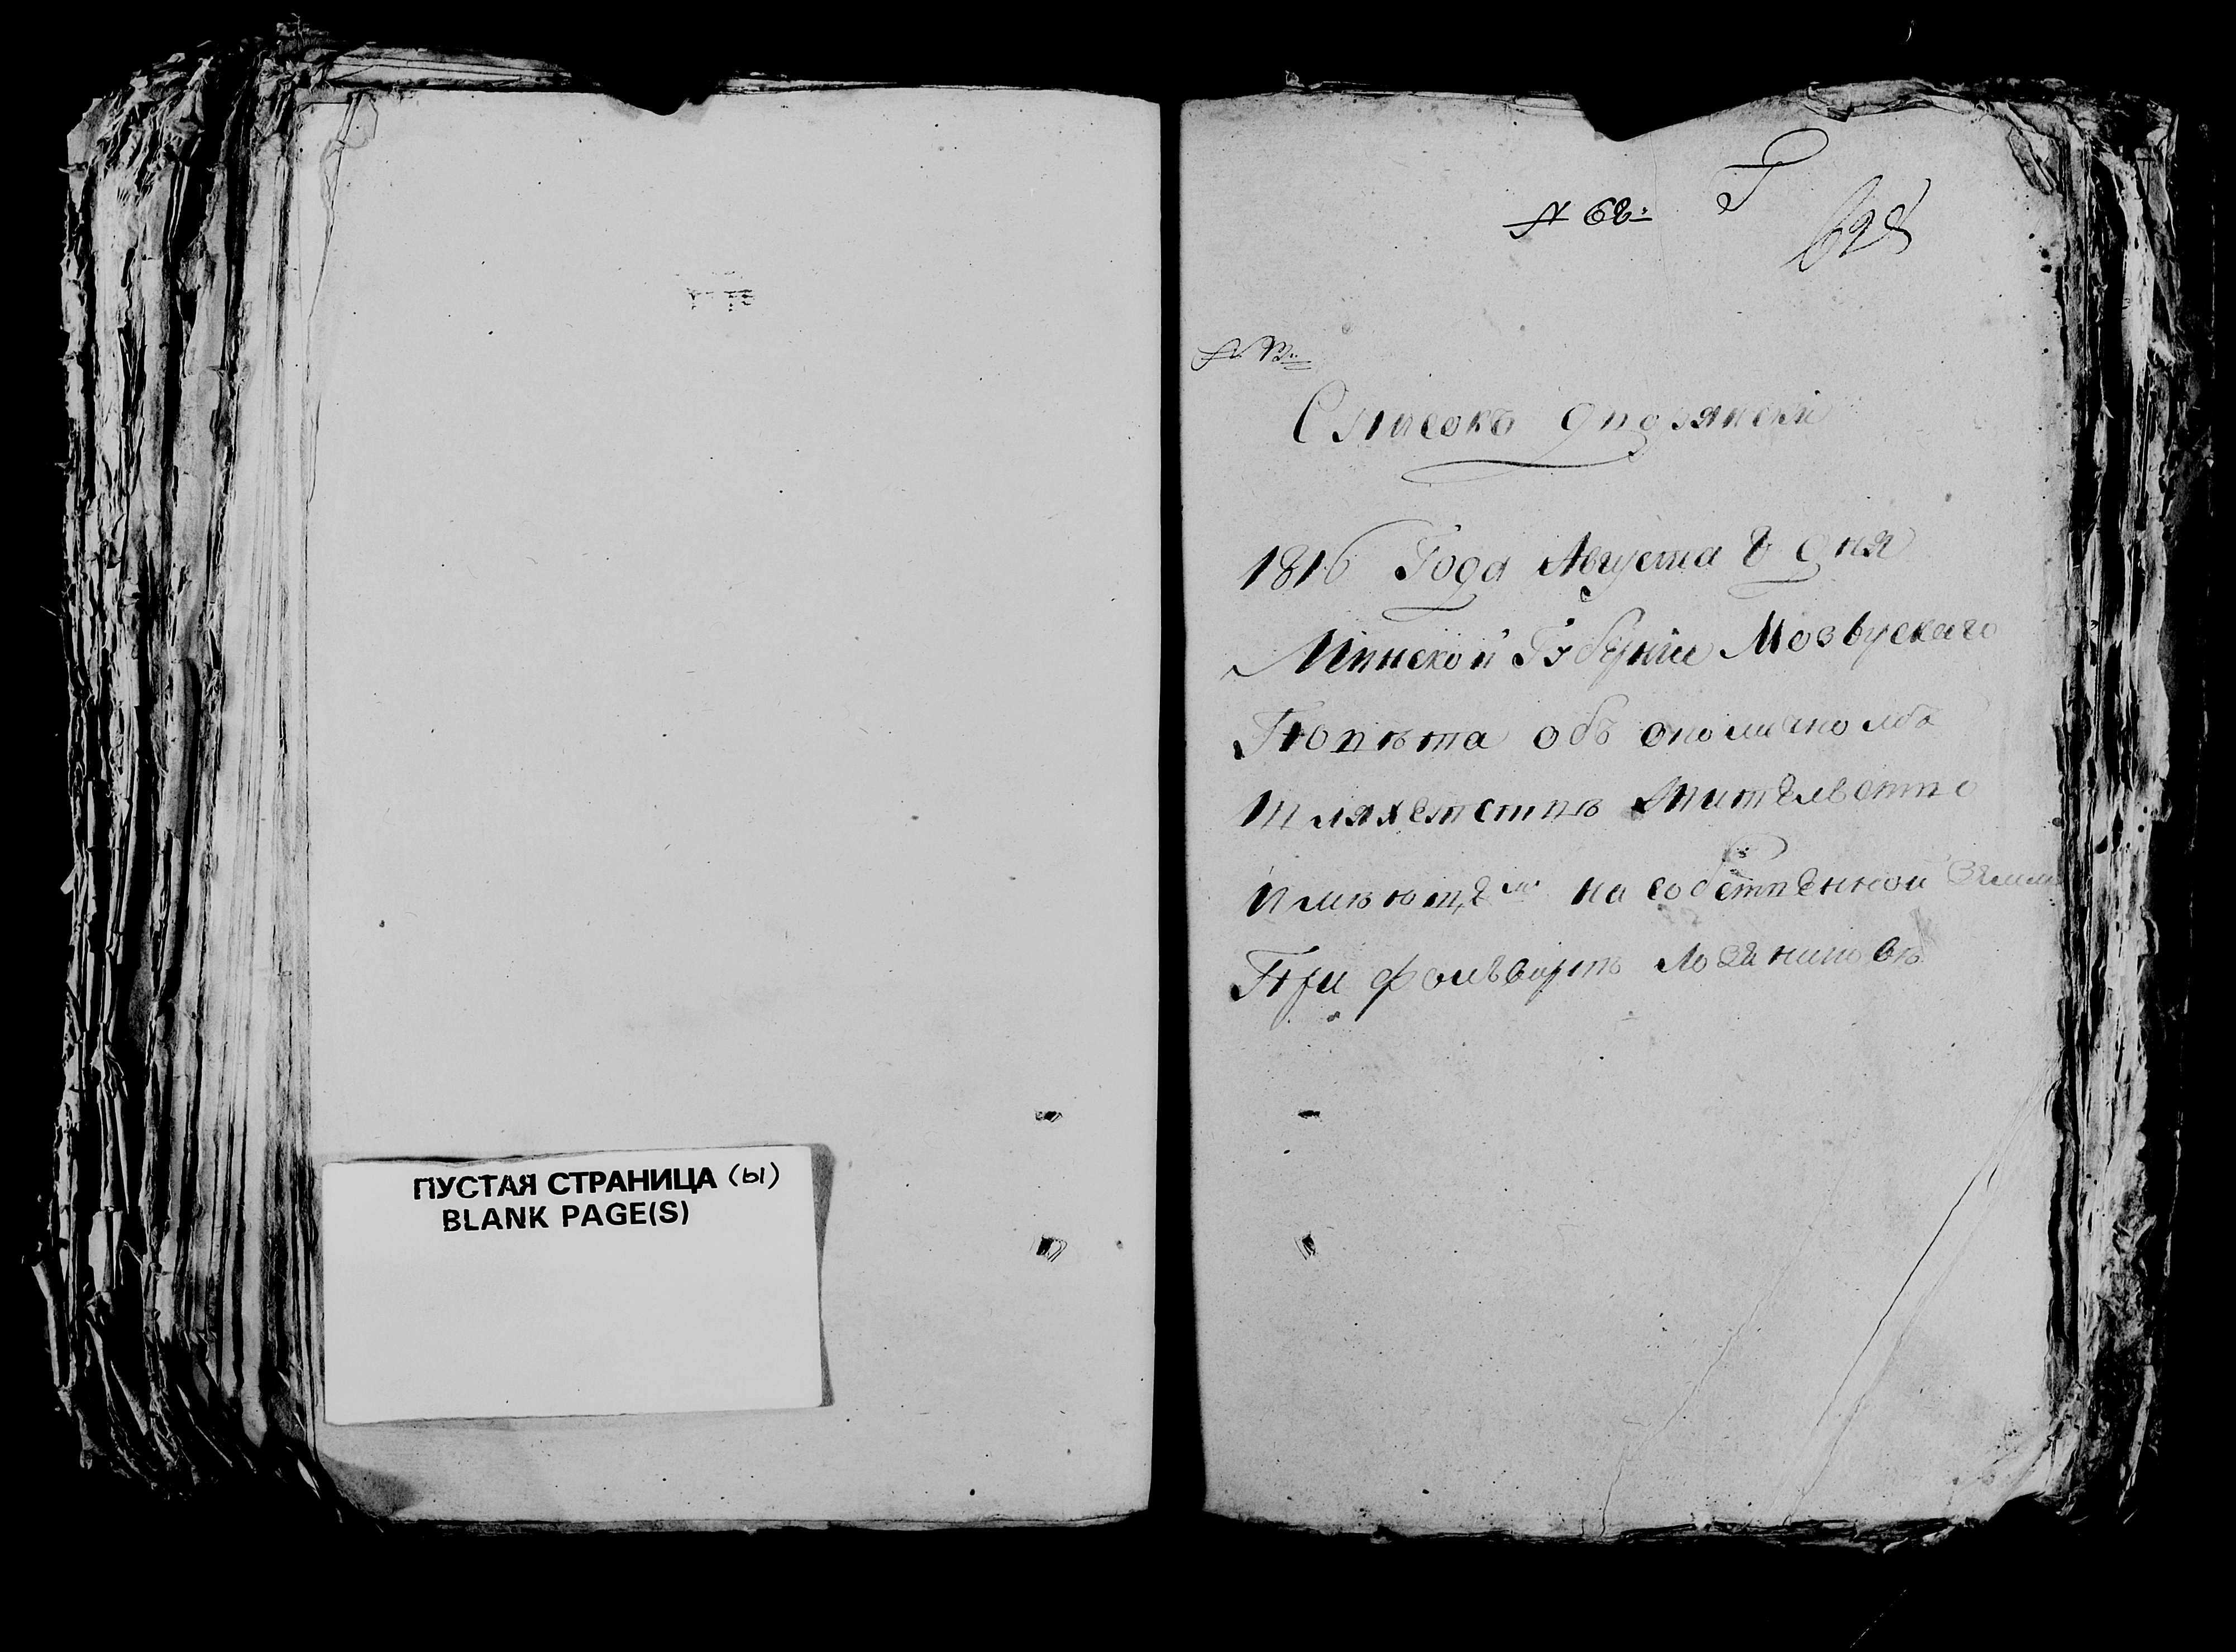 ПУСТАЯ СТРАНИЦА (ы)
BLANK PAGE(S)
№ 68:
628
Списокъ дворянски
1816 Года Августа 8 дня
Минской Губерніи Мозырскаго
Повѣта объ околичномъ
Шляхетствѣ Жительство
Имѣющемъ на собственной Земли
При фольваркѣ